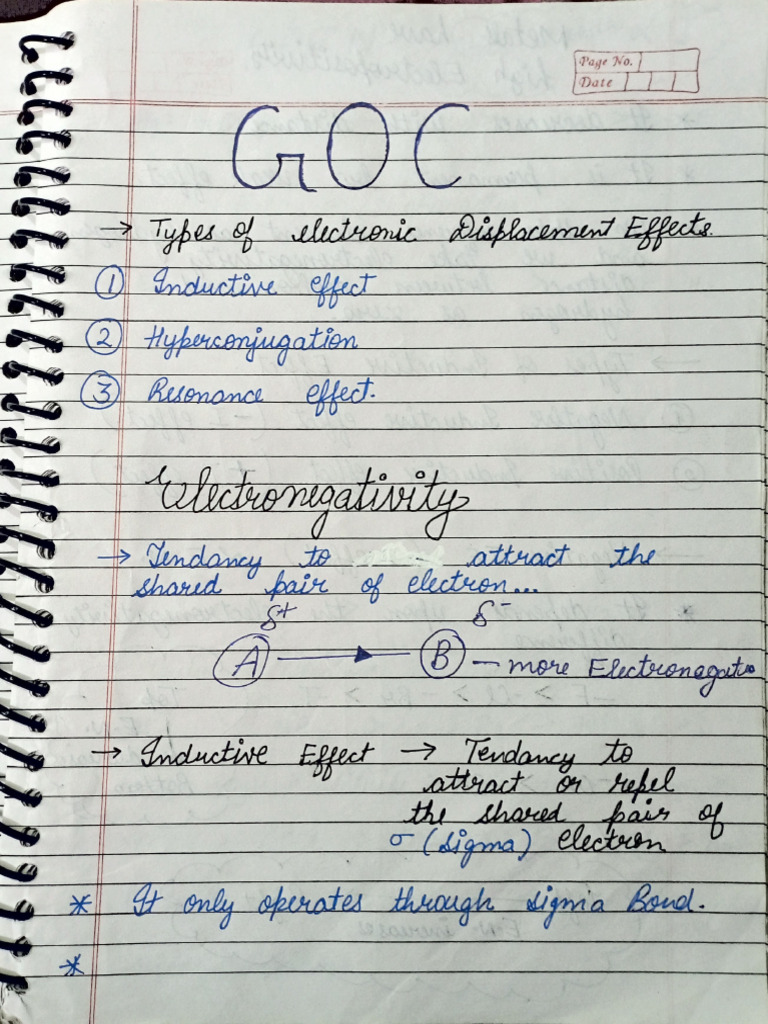 Page No.
Date
GOC
→ Types of electronic Displacement Effects.
① Inductive effect
② Hyperconjugation
③ Resonance effect.
Electronegativity
→ Tendancy to attract the
shared pair of electron...
δ+ δ-
A → B - more Electronegative
→ Inductive Effect → Tendancy to
attract or repel
the shared pair of
σ (sigma) electron
* It only operates through sigma Bond.
*